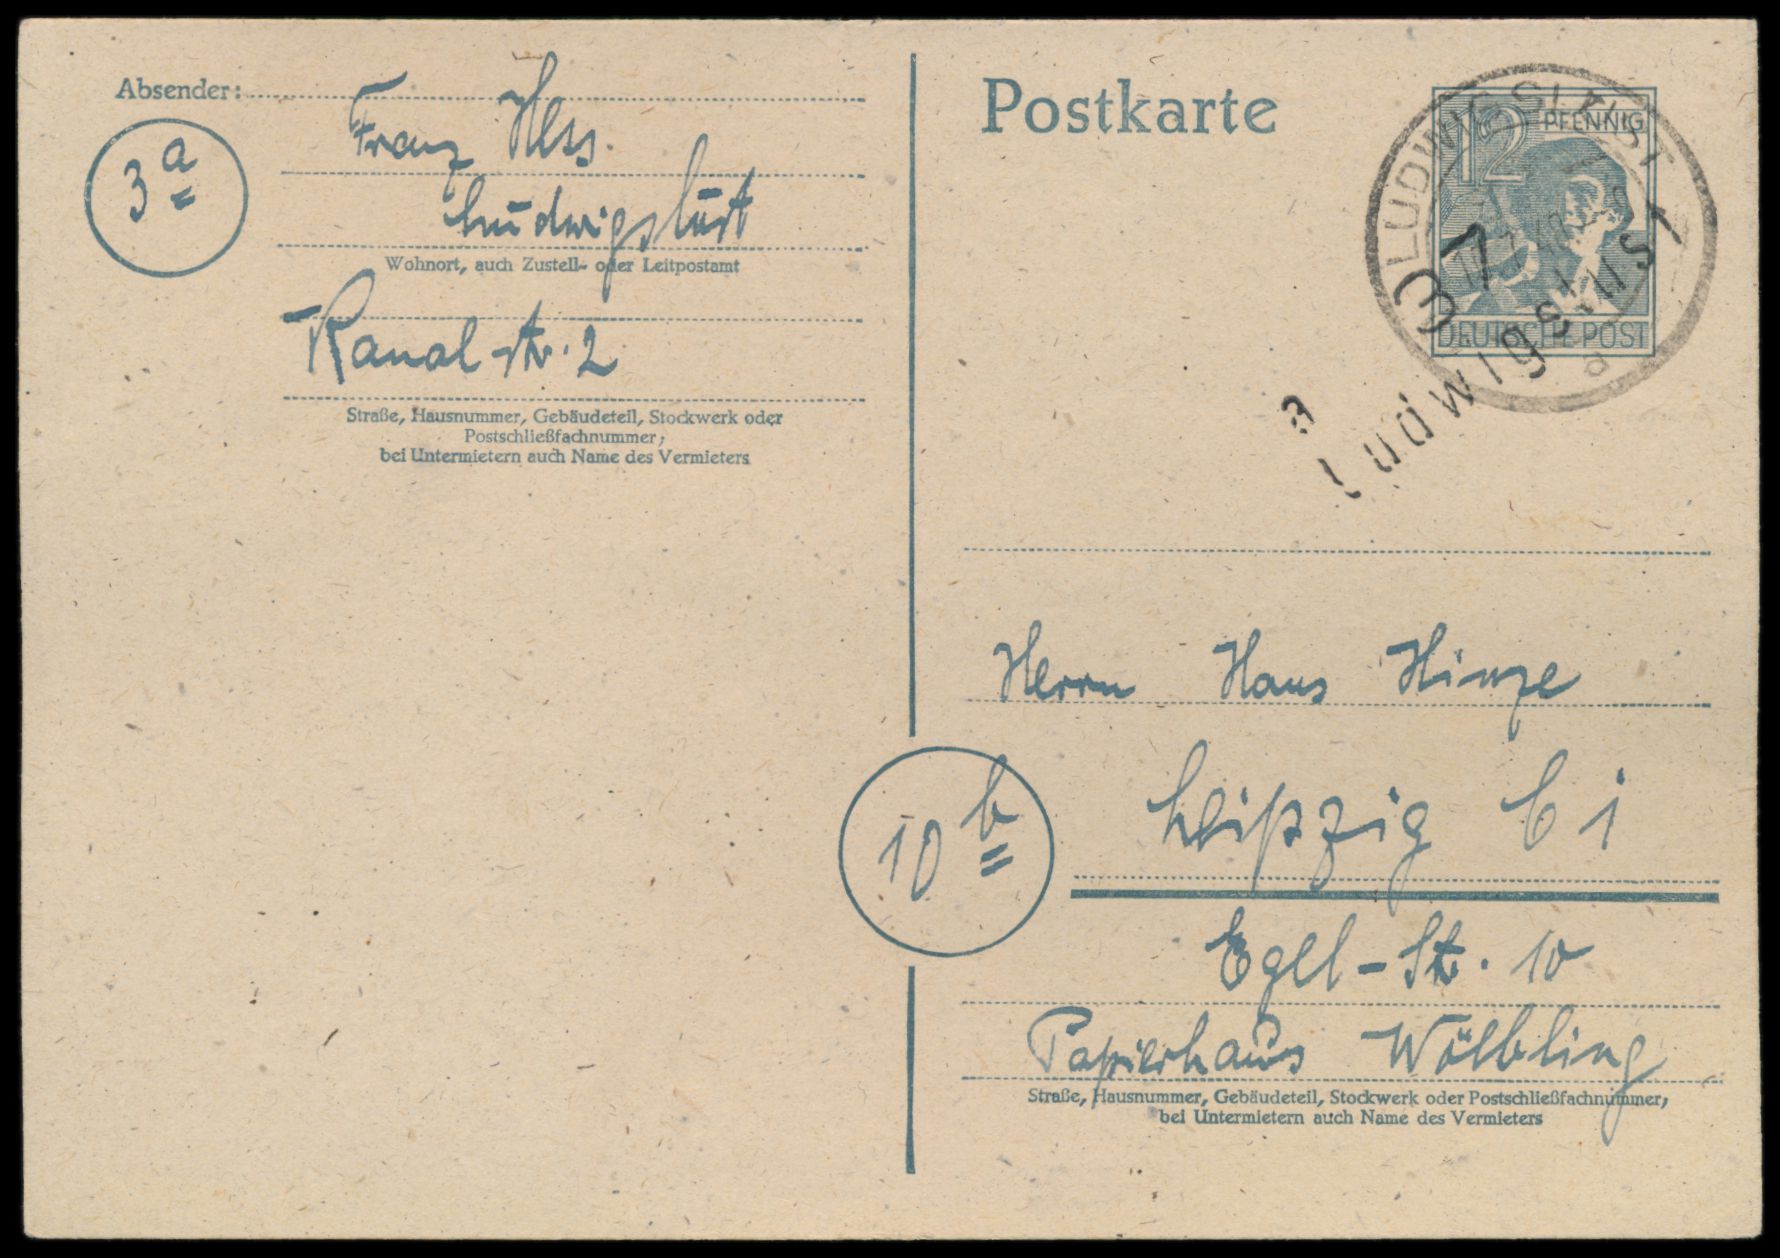 Absender:
Franz Hess.
3a
Ludwigslust
Wohnort, auch Zustell- oder Leitpostamt
Kanal-str. 2
Straße, Hausnummer, Gebäudeteil, Stockwerk oder
Postschließfachnummer;
bei Untermietern auch Name des Vermieters
Postkarte
12 PFENNIG
DEUTSCHE POST
LUDWIGSLUST
a
3
a
Ludwigslust
Herrn Hans Hinze
10b
Leipzig C 1
Egel-Str. 10
Papierhaus Wölbling
Straße, Hausnummer, Gebäudeteil, Stockwerk oder Postschließfachnummer;
bei Untermietern auch Name des Vermieters